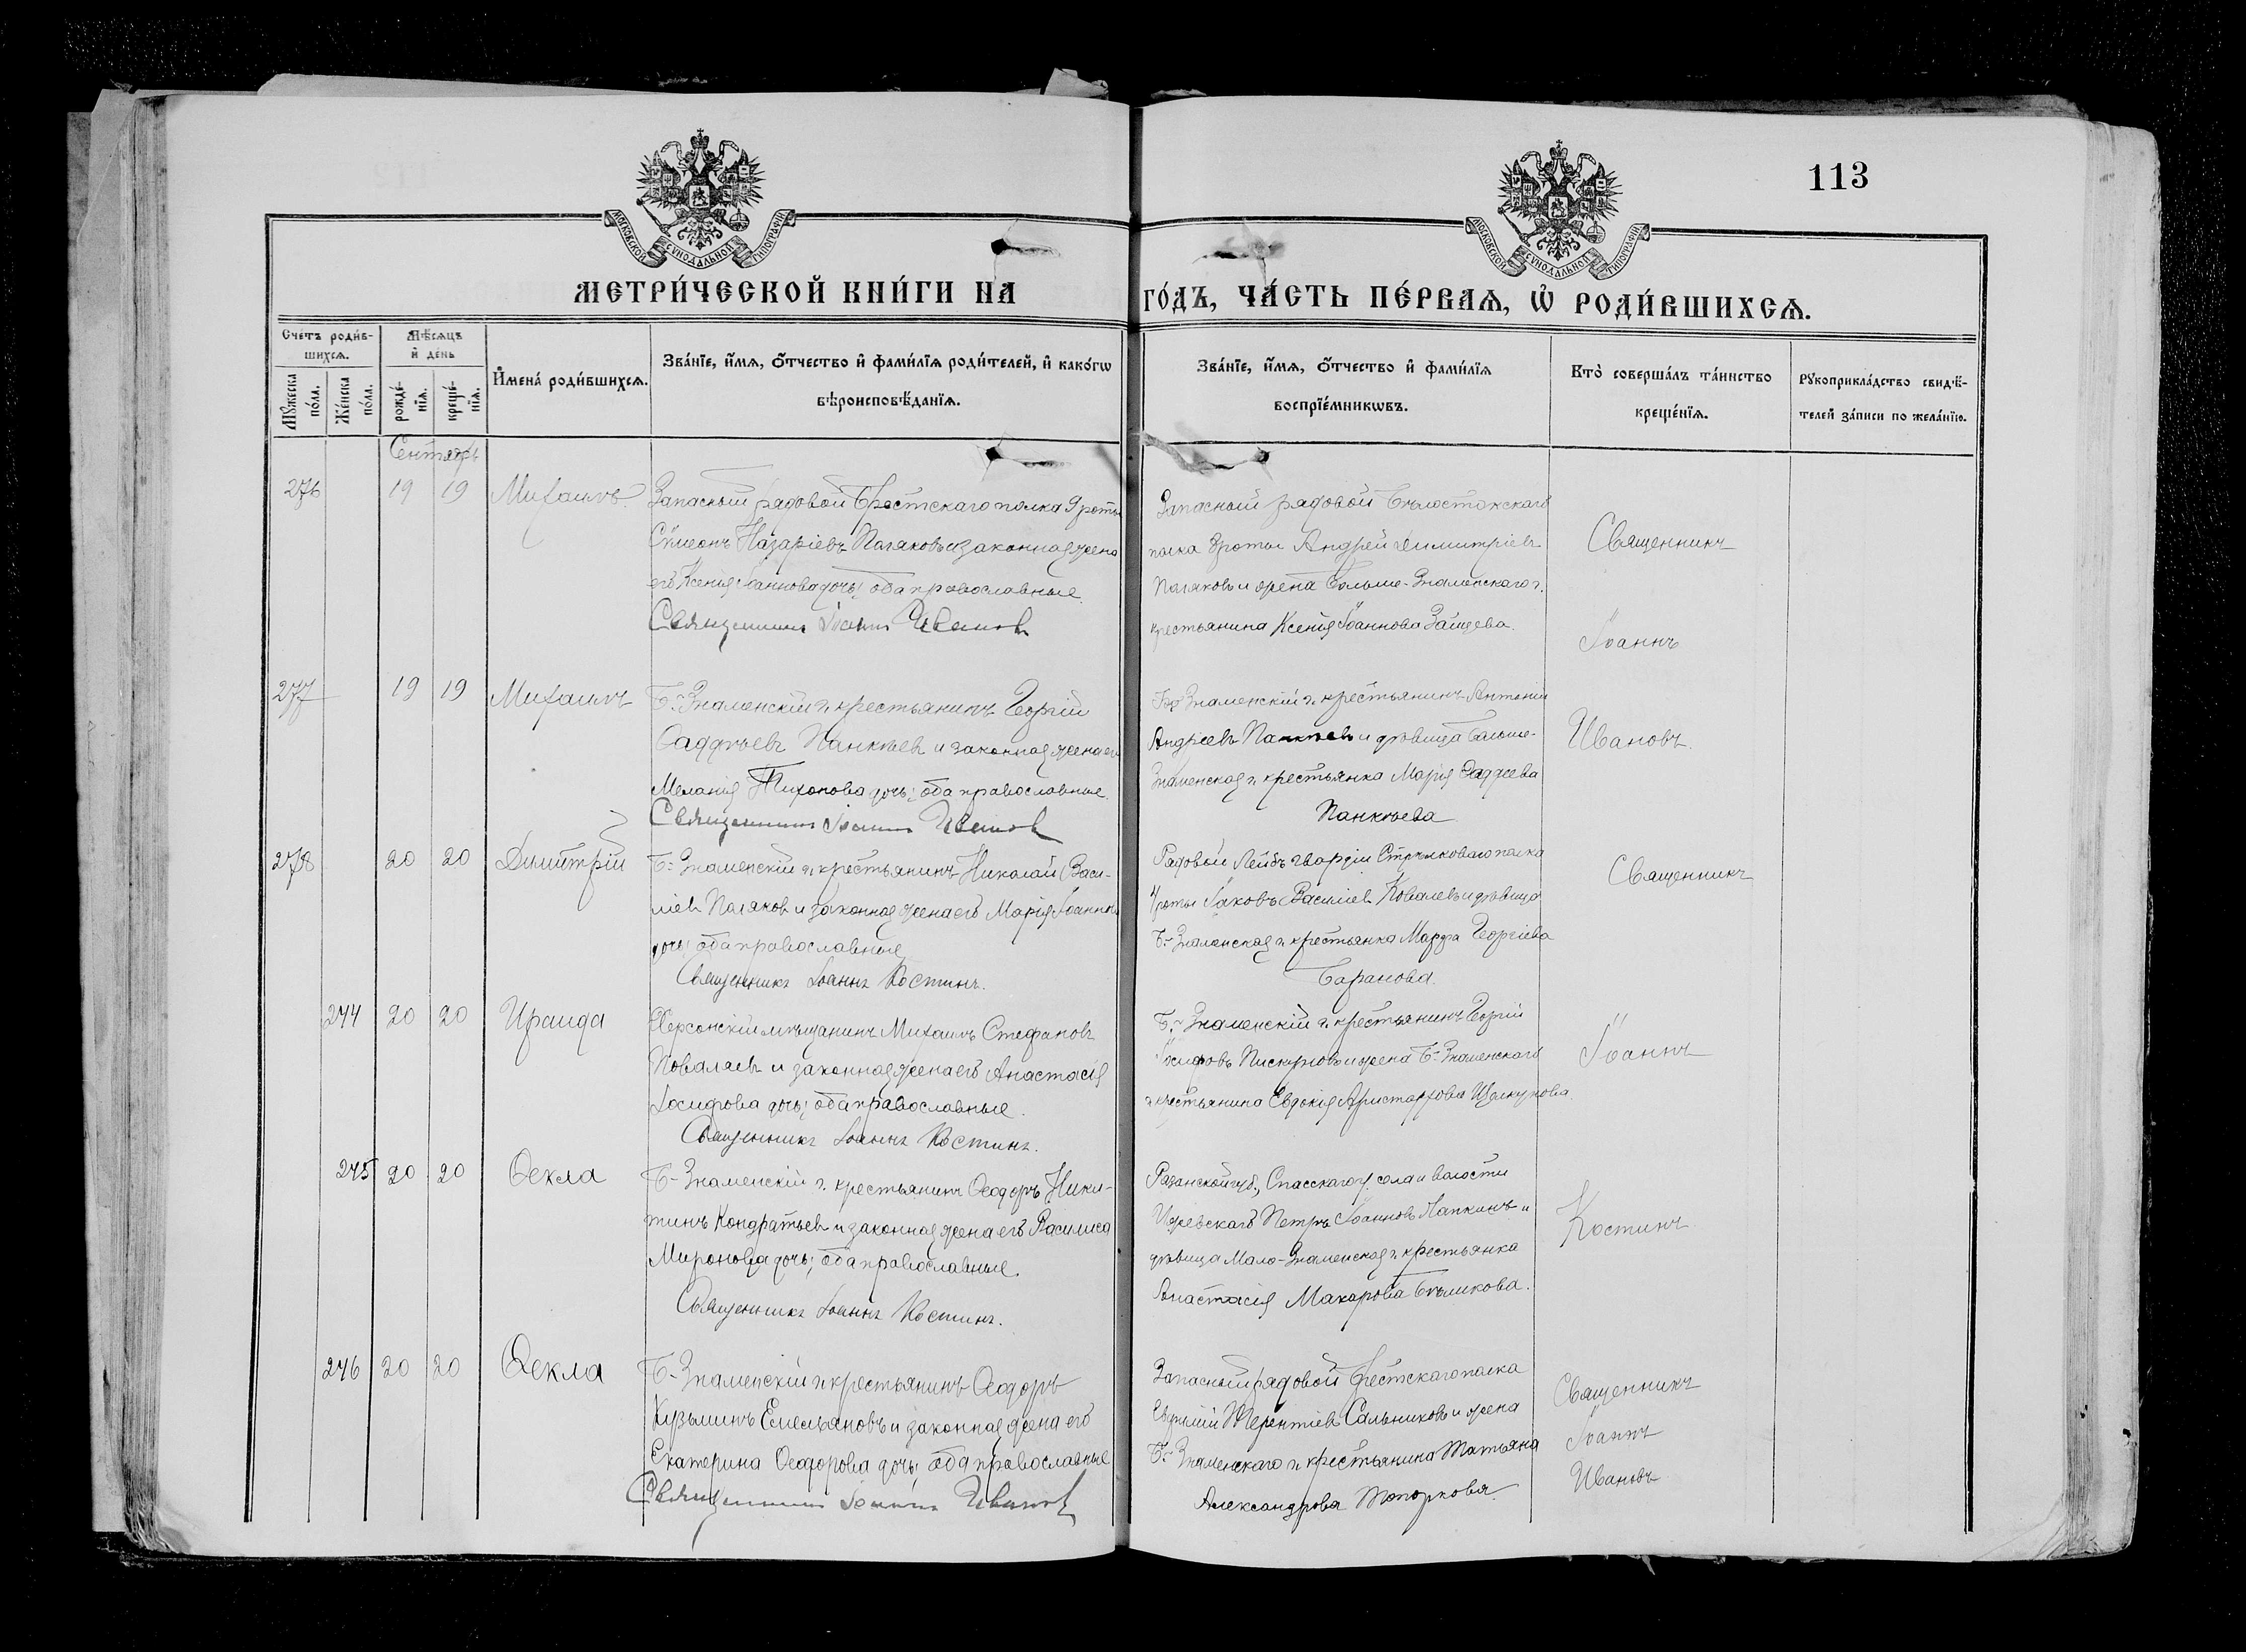 113
МОСКОВСКОЙ СѴНОДАЛЬНОЙ ТИПОГРАФІИ
МОСКОВСКОЙ СѴНОДАЛЬНОЙ ТИПОГРАФІИ
МЕТРИ́ЧЕСКОЙ КНИ́ГИ НА ГО́ДЪ, ЧА́СТЬ ПЕ́РВАѦ, Ѡ҆ РОДИ́ВШИХСѦ.
Счетъ роди́в-
шихсѧ.
Мꙋжеска по́ла.
Же́нска по́ла.
Мѣ́сѧцъ
и҆ де́нь
рожде́-
нїѧ.
креще́-
нїѧ.
И҆мена̀ роди́вшихсѧ.
Зва́нїе, и҆́мѧ, ѻ҆́тчество и҆ фами́лїѧ роди́телей, и҆ како́гѡ
вѣроисповѣ́данїѧ.
Зва́нїе, и҆́мѧ, ѻ҆́тчество и҆ фами́лїѧ
воспрїе́мникѡвъ.
Кто̀ соверша́лъ та́инство
креще́нїѧ.
Рꙋкоприкла́дство свидѣ́-
телей за́писи по жела́нїю.
Сентябрь
276 19 19 Михаилъ
Запасный рядовой Брестскаго полка 9 роты
Сѵмеонъ Назаріевъ Поляковъ и законная жена
его Ксенія Іоаннова дочь; оба православные.
Священникъ Іоаннъ Ивановъ
Запасный рядовой Бѣлостокскаго
полка роты Андрей Димитріевъ
Поляковъ и жена Больше-Знаменскаго г.
крестьянина Ксенія Іоаннова Зайцева.
Священникъ
Іоаннъ
277 19 19 Михаилъ
Б-Знаменскій г. крестьянинъ Георгій
Фаддѣевъ Панкѣевъ и законная жена его
Меланія Тихонова дочь; оба православные.
Священникъ Іоаннъ Ивановъ
Б-Знаменскій г. крестьянинъ Антоній
Андреевъ Панкѣевъ и дѣвица Больше-
Знаменская г. крестьянка Марія Фаддѣева
Панкѣева
Ивановъ.
278 20 20 Димитрій
Б-Знаменскій г. крестьянинъ Николай Васи-
ліевъ Поляков и законная жена его Марія Іоаннова
дочь; оба православные
Священникъ Іоаннъ Костинъ.
Рядовой Лейбъ гвардіи Стрѣлковаго полка
роты Іаковъ Василіевъ Ковалевъ и дѣвица
Б-Знаменская г. крестьянка Марфа Георгіева
Баранова.
Священникъ
244 20 20 Ираида
Херсонскій мѣщанинъ Михаилъ Стефановъ
Поваляевъ и законная жена его Анастасія
Іосифова дочь; оба православные.
Священникъ Іоаннъ Костинъ.
Б-Знаменскій г. крестьянинъ Георгій
Іосифовъ Пискуновъ и жена Б-Знаменскаго
г. крестьянина Евдокія Аристархова Щелкунова.
Іоаннъ
245 20 20 Ѳекла
Б-Знаменскій г. крестьянинъ Ѳеодоръ Ники-
тинъ Кондратьевъ и законная жена его Василиса
Миронова дочь; оба православные.
Священникъ Іоаннъ Костинъ.
Рязанской губ., Спасскаго у. села и волости
Ижевскаго Петръ Іоанновъ Лапкинъ и
дѣвица Мало-Знаменская г. крестьянка
Анастасія Макарова Бѣликова.
Костинъ
246 20 20 Ѳекла
Б-Знаменскій г. крестьянинъ Ѳеодоръ
Кузьминъ Емельяновъ и законная жена его
Екатерина Ѳеодорова дочь; оба православные
Священникъ Іоаннъ Ивановъ
Запасный рядовой Брестскаго полка
Евфимій Терентіевъ Сальниковъ и жена
Б-Знаменскаго г. крестьянина Татьяна
Александрова Топоркова.
Священникъ
Іоаннъ
Ивановъ